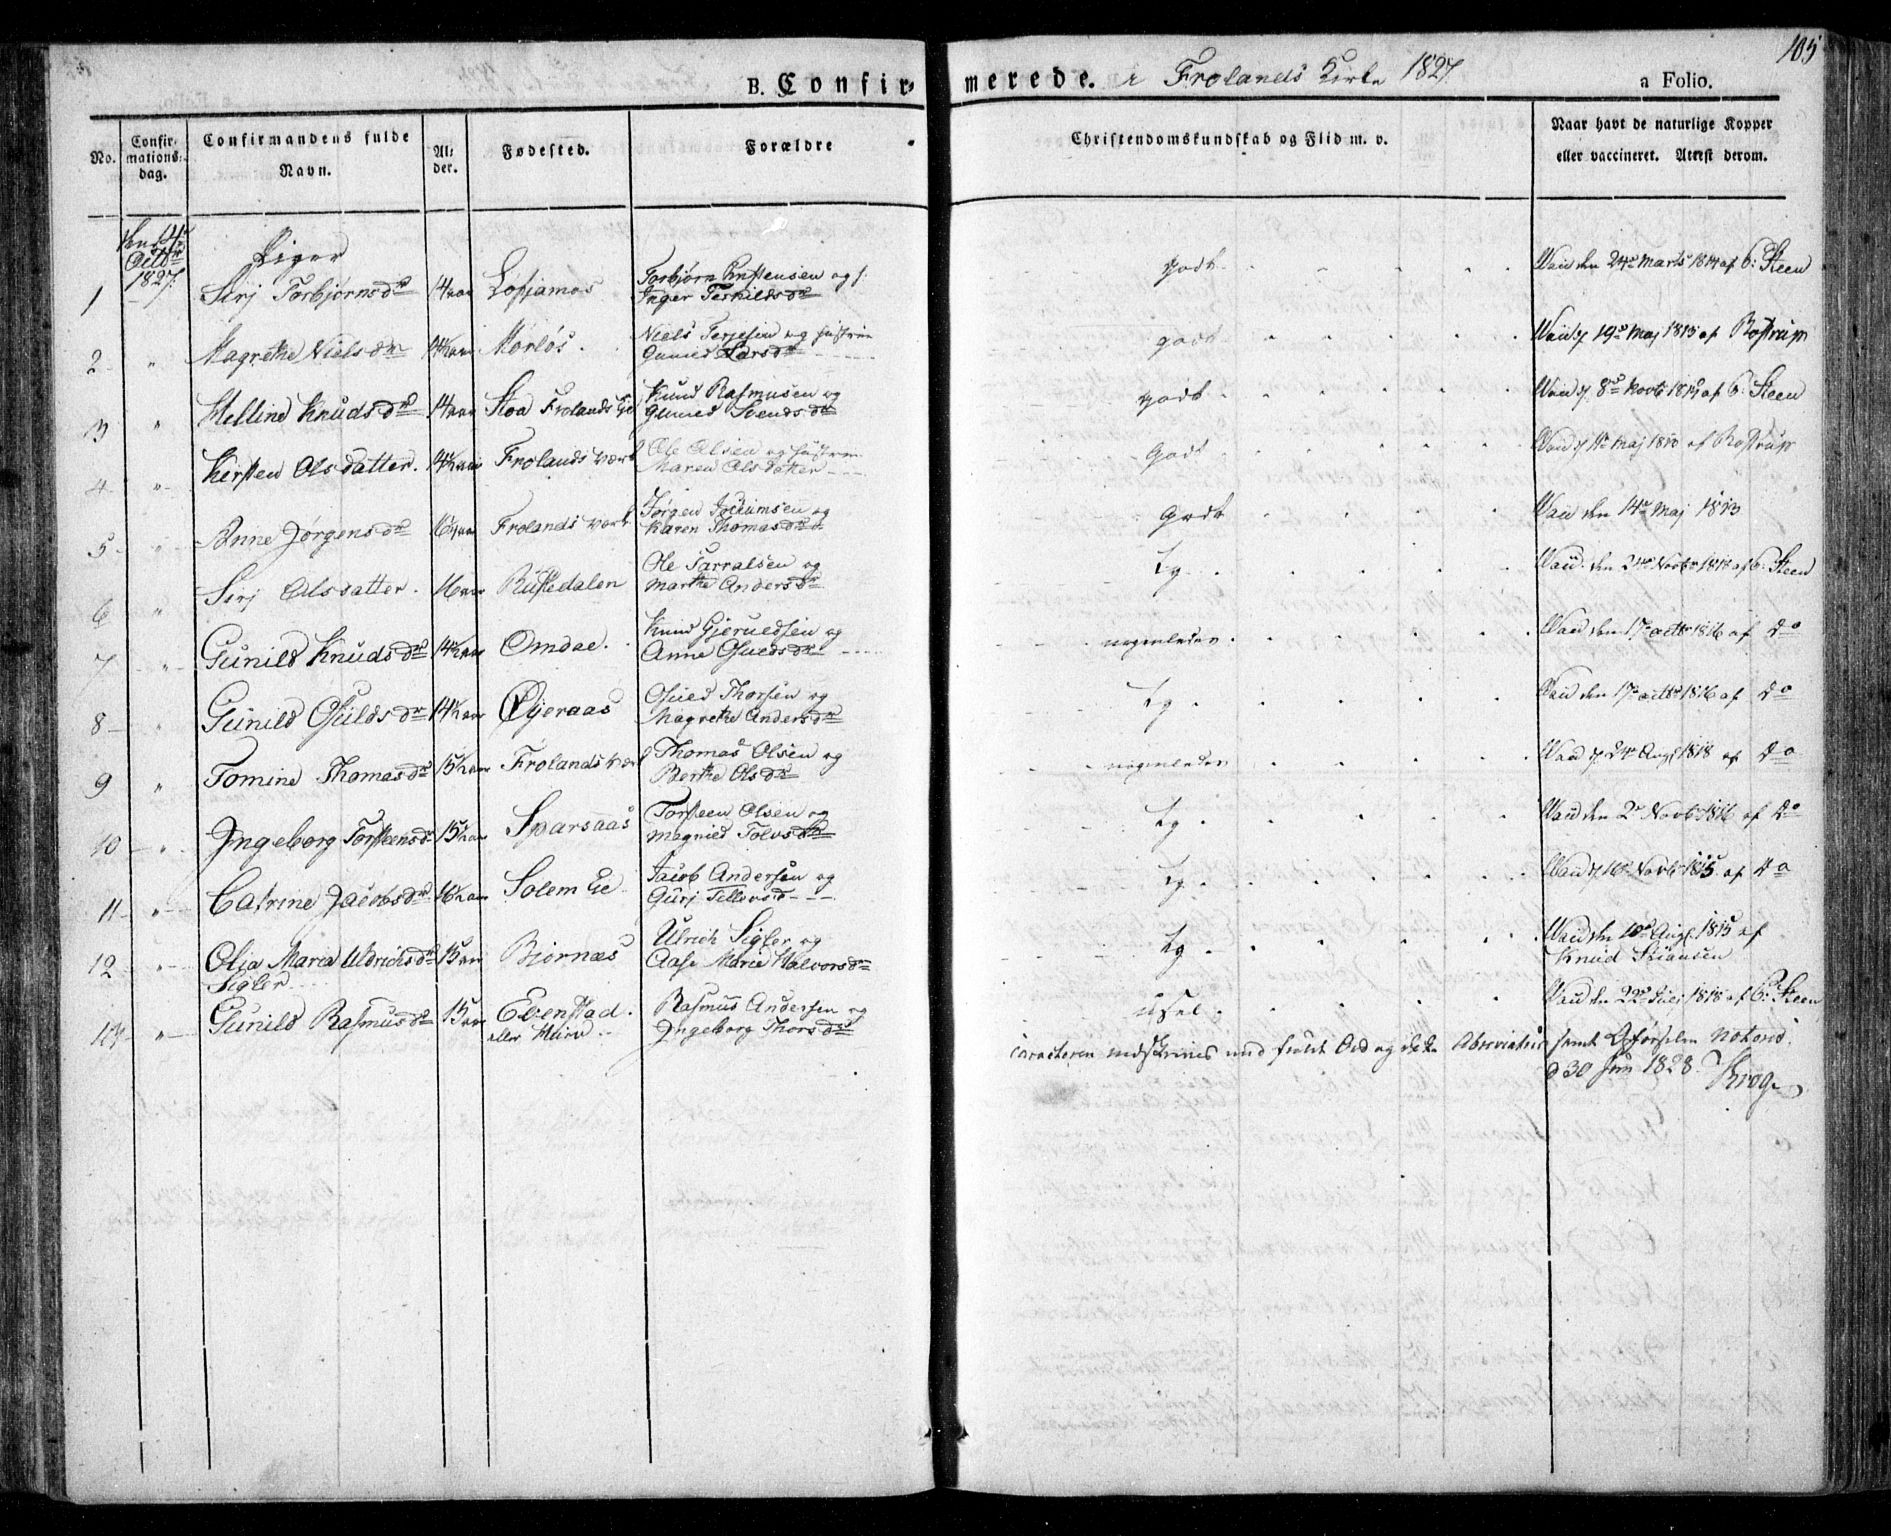 105
B. Confirmerede. i Frolands Kirke 1827
a Folio.
No.
Confirmations-dag.
Confirmandens fulde Navn.
Alder.
Fødested.
Forældre
Christendomskundskab og Flid m. v.
Naar havt de naturlige Kopper eller vaccineret. Attest derom.
den 14de Octbr 1827.
Piger
1 Sirj Torbjørnsdr 14 aar Torbjørn og
Inger Terkildsdr godt Vac den 24de Marts 1814 af C: Steen
2 " Magrethe Nielsdr 14½ aar Morløs. Niels Terjesen og Hustrue
Gunild Larsdr godt Vac d 19de Maj 1813 af Rostrup
3 " Helline Knudsdr 14 aar Stoa Frolands Knud Rasmusen og
Guned Svendsdr godt Vac d. 8de Novb af C. Steen
4 " Kersten Olsdatter. 14½ aar Frolands værk Ole Olsen og Hustrue
Maren Olsdatter godt Vac d 11te Maj 1813 af Rostrup
5 " Anne Jørgensdr 16 aar Frolands værk Jørgen Jochumsen og
Karen Thomasdr Godt Vac den 14de Maj 1813
6 " Sirj Olsdatter. 16 aar Rustedalen Ole Tarralsen og
Marthe Andersdr Tg Vac. den 24de Novbr 1818 af C: Steen
7 " Gunild Knudsdr 14½ aar Omdae. Knud Gjeruldsen og
Anne Osuldsdr nogenledes Vac den 17de octbr 1816 af do
8 " Gunild Osuldsdr 14½ aar Øjeraas Osuld Thorsen og
Magrethe Andersdr Tg Vac den 17de octbr 1816 af do
9 " Tomine Thomasdr 15½ aar Frolands værk Thomas Olsen og
Berthe Olsdr nogenledes Vac d 24de Augs 1818 af do
10 " Ingeborg Torsteensdr 15½ aar Sparsaas Torsteen Olsen og
Magnild Tolvsdr Tg Vac den 2de Novb 1816 af do
11 " Catrine Jacobsdr 16½ aar Solem Eje Jacob Andersen og
Gurj Tellevsd Tg Vac d 16de Novb 1815 af do
12 " Olea Maria Uldrichsdr 15 aar Bjørnaes Ulrich Sigler og
Sigler Aase Marie Halvorsdr Tg Vac den 10de Augs. 1815 af
Knud
13 " Gunild Rasmusdr 15 aar Evenstad. Rasmus Andersen og
eller Ingeborg Thorsdr usel Vac den 22de Julj 1818 af C: Steen
Caracteren nedskrives med fuldt Ord og ikke Abreviatur, samt Opførselen Noteres.
d 30 Jun 1828. Krog